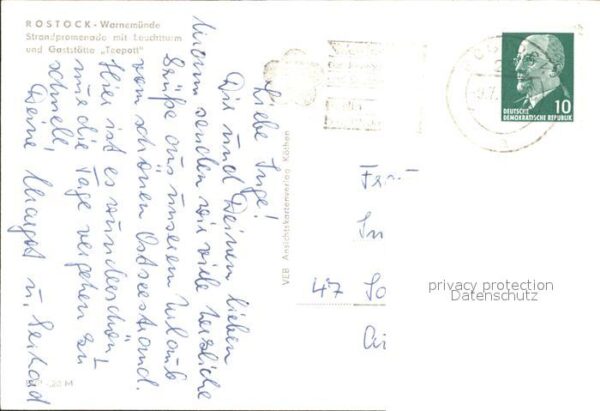 ROSTOCK - Warnemünde
Strandpromenade mit Leuchtturm
und Gaststätte „Teepott"
Liebe Inge!
Dir und Deinen lieben
senden wir viele herzliche
Grüße aus unserem Urlaub
vom schönen Ostseestrand.
Hier ist es wunderschön!
nur die Tage vergehen zu
schnell,
Deine Margot u. Gerhard
VEB Ansichtskartenverlag Köthen
10
DEUTSCHE
DEMOKRATISCHE REPUBLIK
Frau
In
47 So
privacy protection
Datenschutz